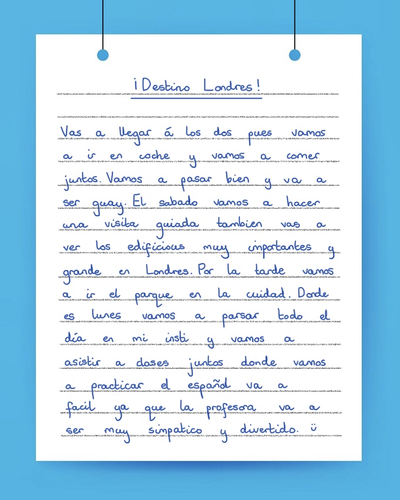 ¡Destino Londres!
Vas a llegar á los dos pues vamos
a ir en coche y vamos a comer
juntos. Vamos a pasar bien y va a
ser guay. El sabado vamos a hacer
una visita guiada tambien vas a
ver los edificious muy importantes y
grande en Londres. Por la tarde vamos
a ir el parque en la cuidad. Donde
es lunes vamos a parsar todo el
día en mi insti y vamos a
asistir a clases juntos donde vamos
a practicar el español va a
facil ya que la profesora va a
ser muy simpatico y divertido. ü